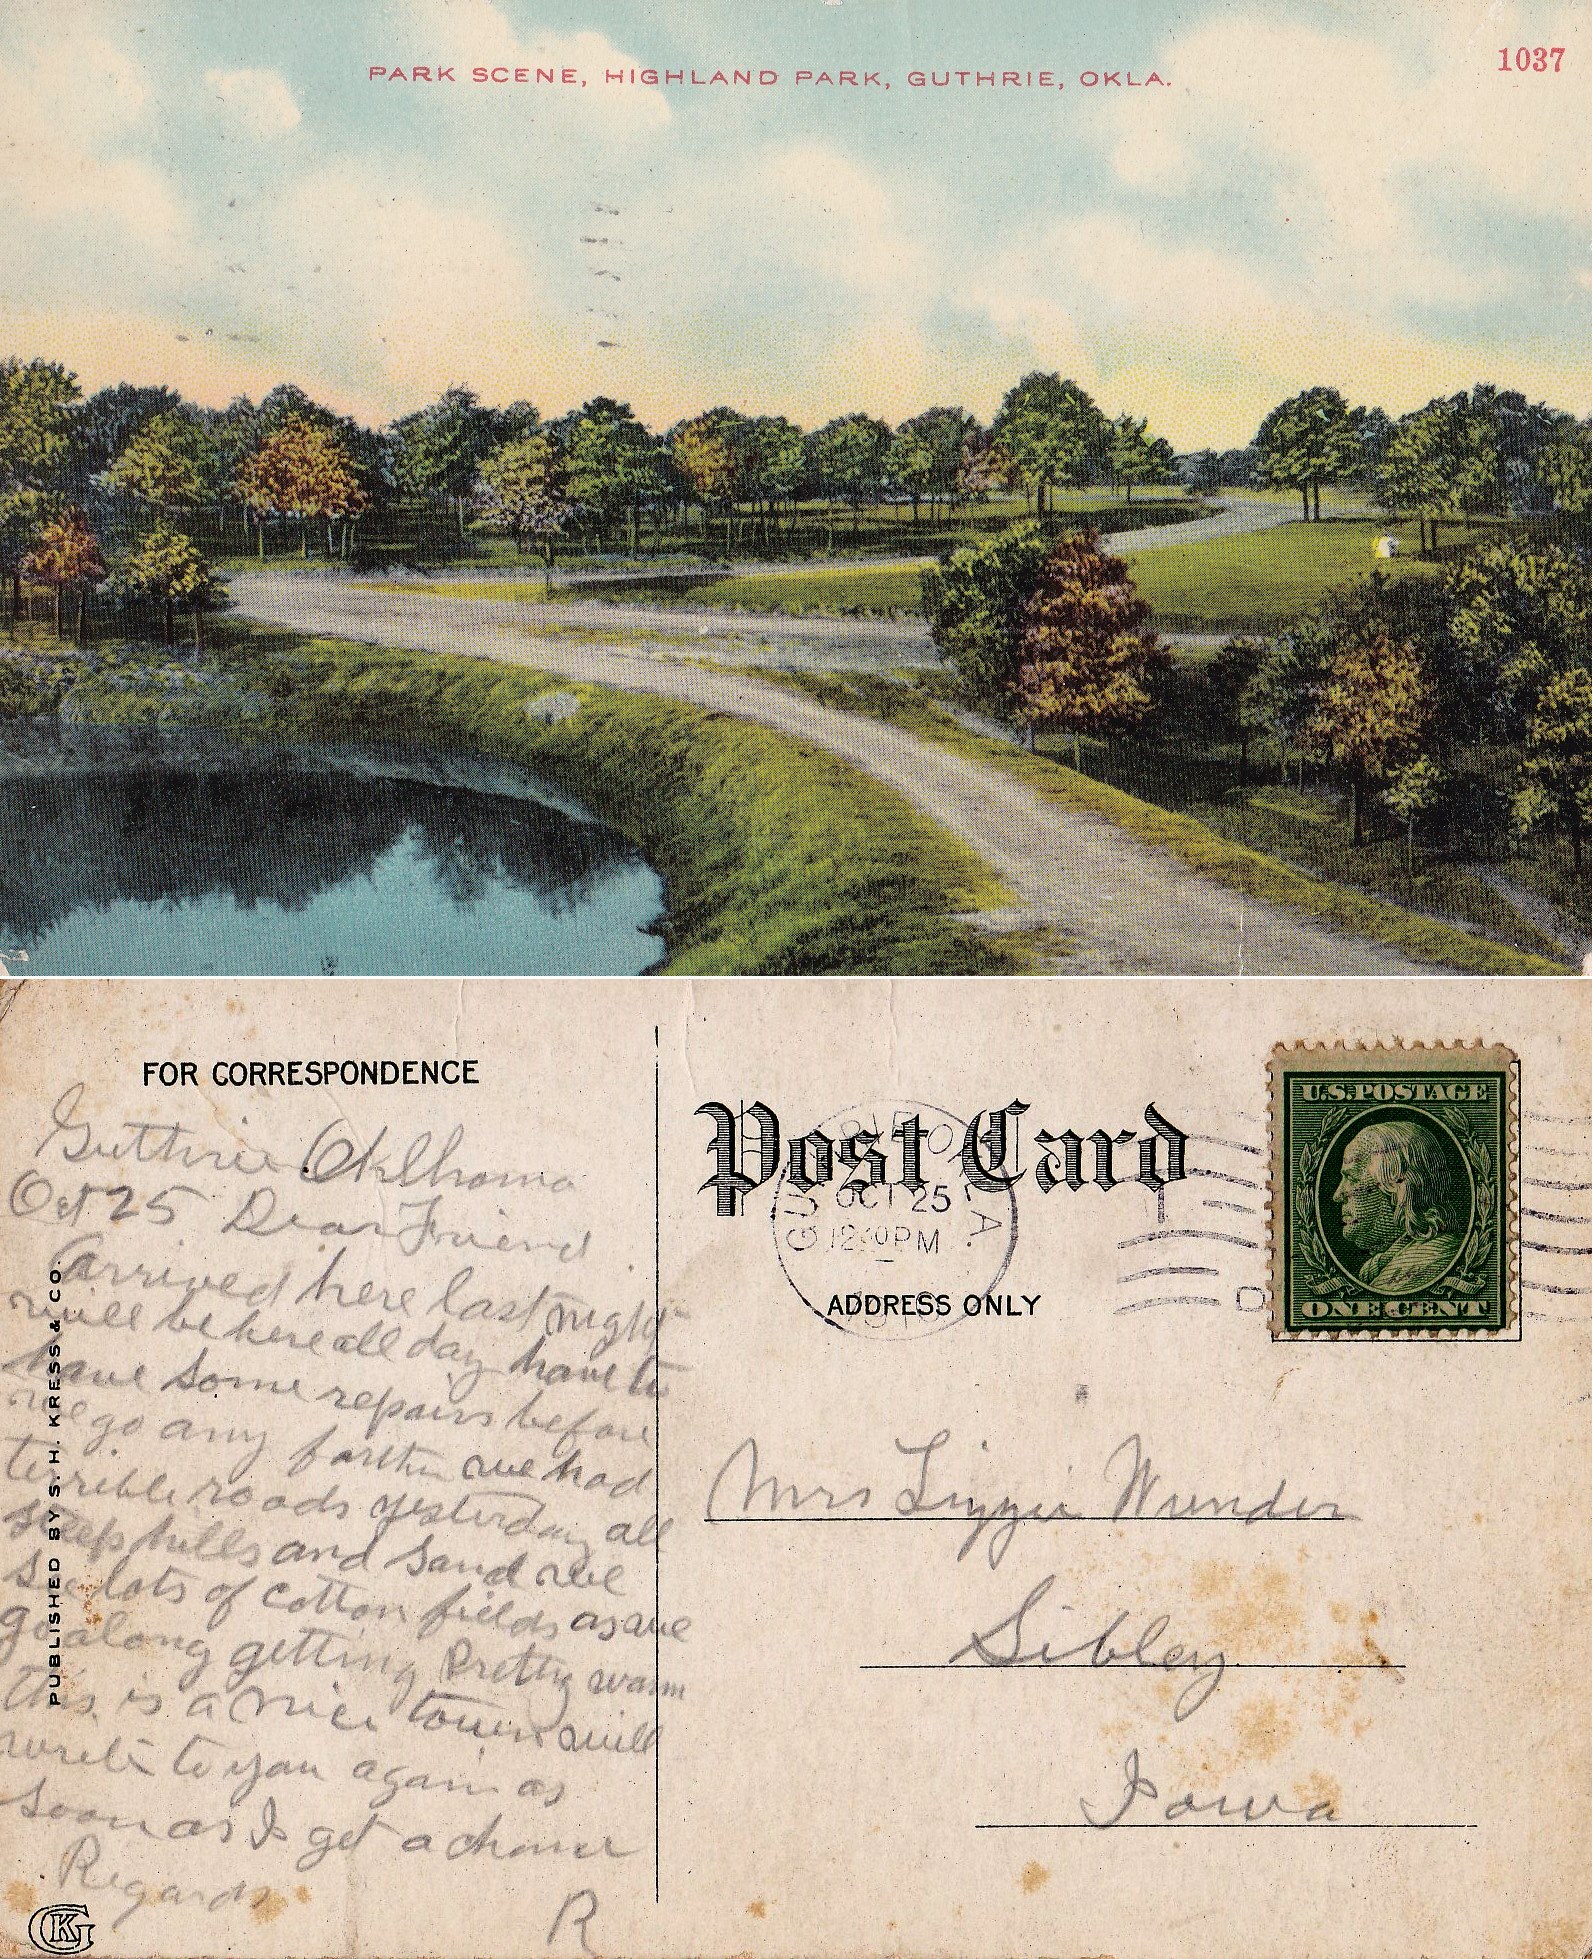 PARK SCENE, HIGHLAND PARK, GUTHRIE, OKLA.
1037
FOR CORRESPONDENCE
Guthrie Oklhoma
Oct 25 Dear Friend
Arrived here last night
will be here all day have to
have some repairs before
we go any farther we had
terrible roads yesterday all
steep hills and sand we
see lots of cotton fields as we
go along getting Pretty warm
this is a nice town will
write to you again as
soon as I get a chance
Regards
R
PUBLISHED BY S. H. KRESS & CO.
KG
Post Card
OCT 25
12 PM
ADDRESS ONLY
U.S. POSTAGE
ONE CENT
Mrs Lizzie Wunder
Sibley
Iowa